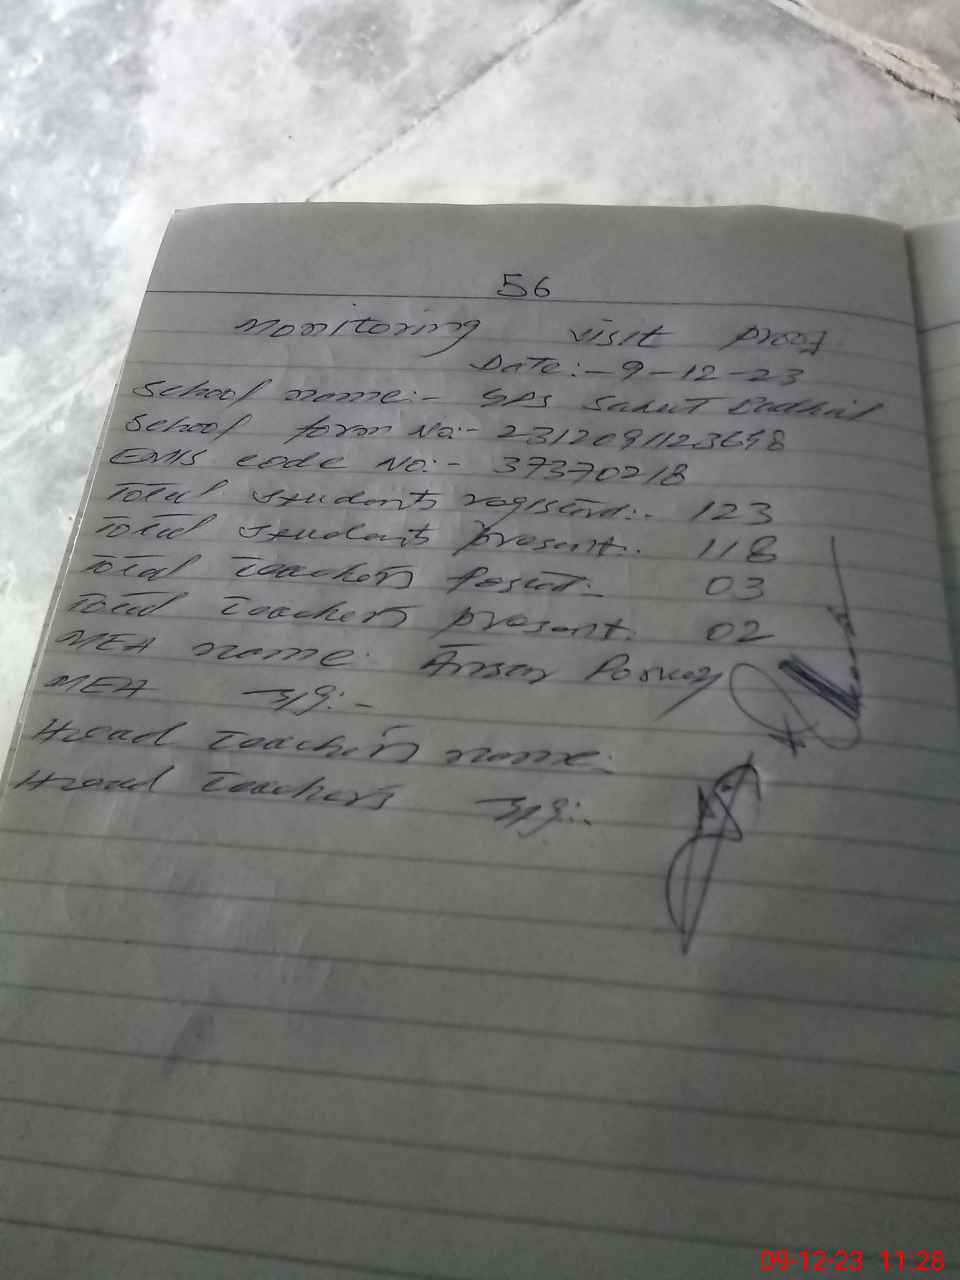 56
Monitoring visit proof
Date:- 9-12-23
School name:- GPS
School form No:- 2312091123698
EMIS code No:- 37370218
Total students registerd:- 123
Total students present:- 118
Total Teachers Posted:- 03
Total Teachers present:- 02
MEA name:- Ansar
MEA sig:-
Head Teachers name:-
Head Teachers sig:-
09-12-23 11:28